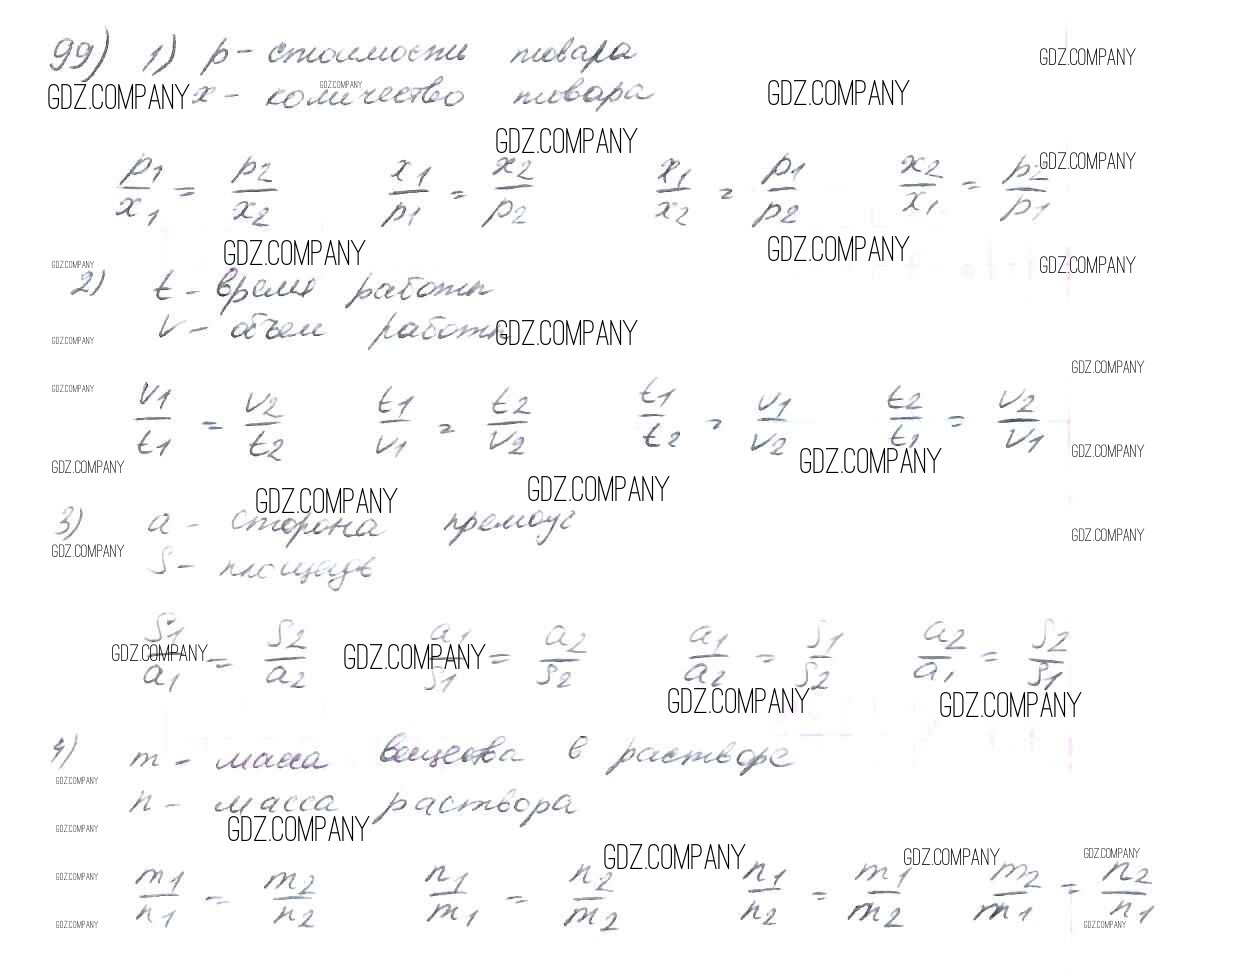 99) 1) p - стоимость товара
GDZ.COMPANY
GDZ.COMPANY x - количество товара
GDZ.COMPANY
GDZ.COMPANY
GDZ.COMPANY
p1/x1 = p2/x2 x1/p1 = x2/p2 x1/x2 = p1/p2 x2/x1 = p2/p1
GDZ.COMPANY
GDZ.COMPANY
GDZ.COMPANY
GDZ.COMPANY
GDZ.COMPANY
2) t - время работы
V - объем работы
GDZ.COMPANY
GDZ.COMPANY
GDZ.COMPANY
GDZ.COMPANY
V1/t1 = V2/t2 t1/V1 = t2/V2 t1/t2 = V1/V2 t2/t1 = V2/V1
GDZ.COMPANY
GDZ.COMPANY
GDZ.COMPANY
GDZ.COMPANY
GDZ.COMPANY
3) a - сторона прямоуг
GDZ.COMPANY
GDZ.COMPANY
S - площадь
S1/a1 = S2/a2 a1/S1 = a2/S2 a1/a2 = S1/S2 a2/a1 = S2/S1
GDZ.COMPANY
GDZ.COMPANY
GDZ.COMPANY
GDZ.COMPANY
4) m - масса вещества в растворе
GDZ.COMPANY
n - масса раствора
GDZ.COMPANY
GDZ.COMPANY
GDZ.COMPANY
GDZ.COMPANY
GDZ.COMPANY
m1/n1 = m2/n2 n1/m1 = n2/m2 n1/n2 = m1/m2 m2/m1 = n2/n1
GDZ.COMPANY
GDZ.COMPANY
GDZ.COMPANY